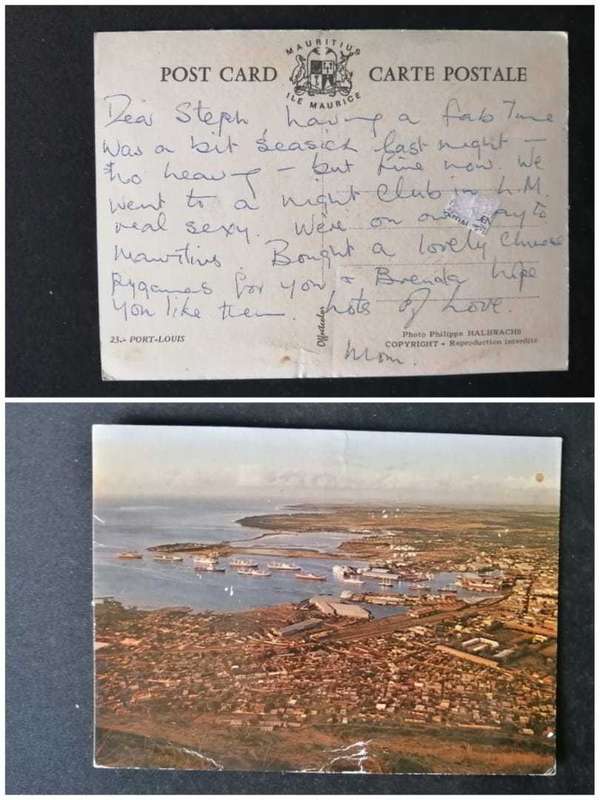 MAURITIUS
POST CARD CARTE POSTALE
ILE MAURICE
Dear Steph having a fab Time
was a bit seasick last night -
no heavy - but fine now. We
went to a night club in L.M.
real sexy. We're on our way to
Mauritius. Bought a lovely Chinese
Pygamas for you & Brenda hope
you like them. Lots of Love.
Mom.
23.- PORT-LOUIS
Offsetcolor
Photo Philippe HALBWACHS
COPYRIGHT - Reproduction interdite